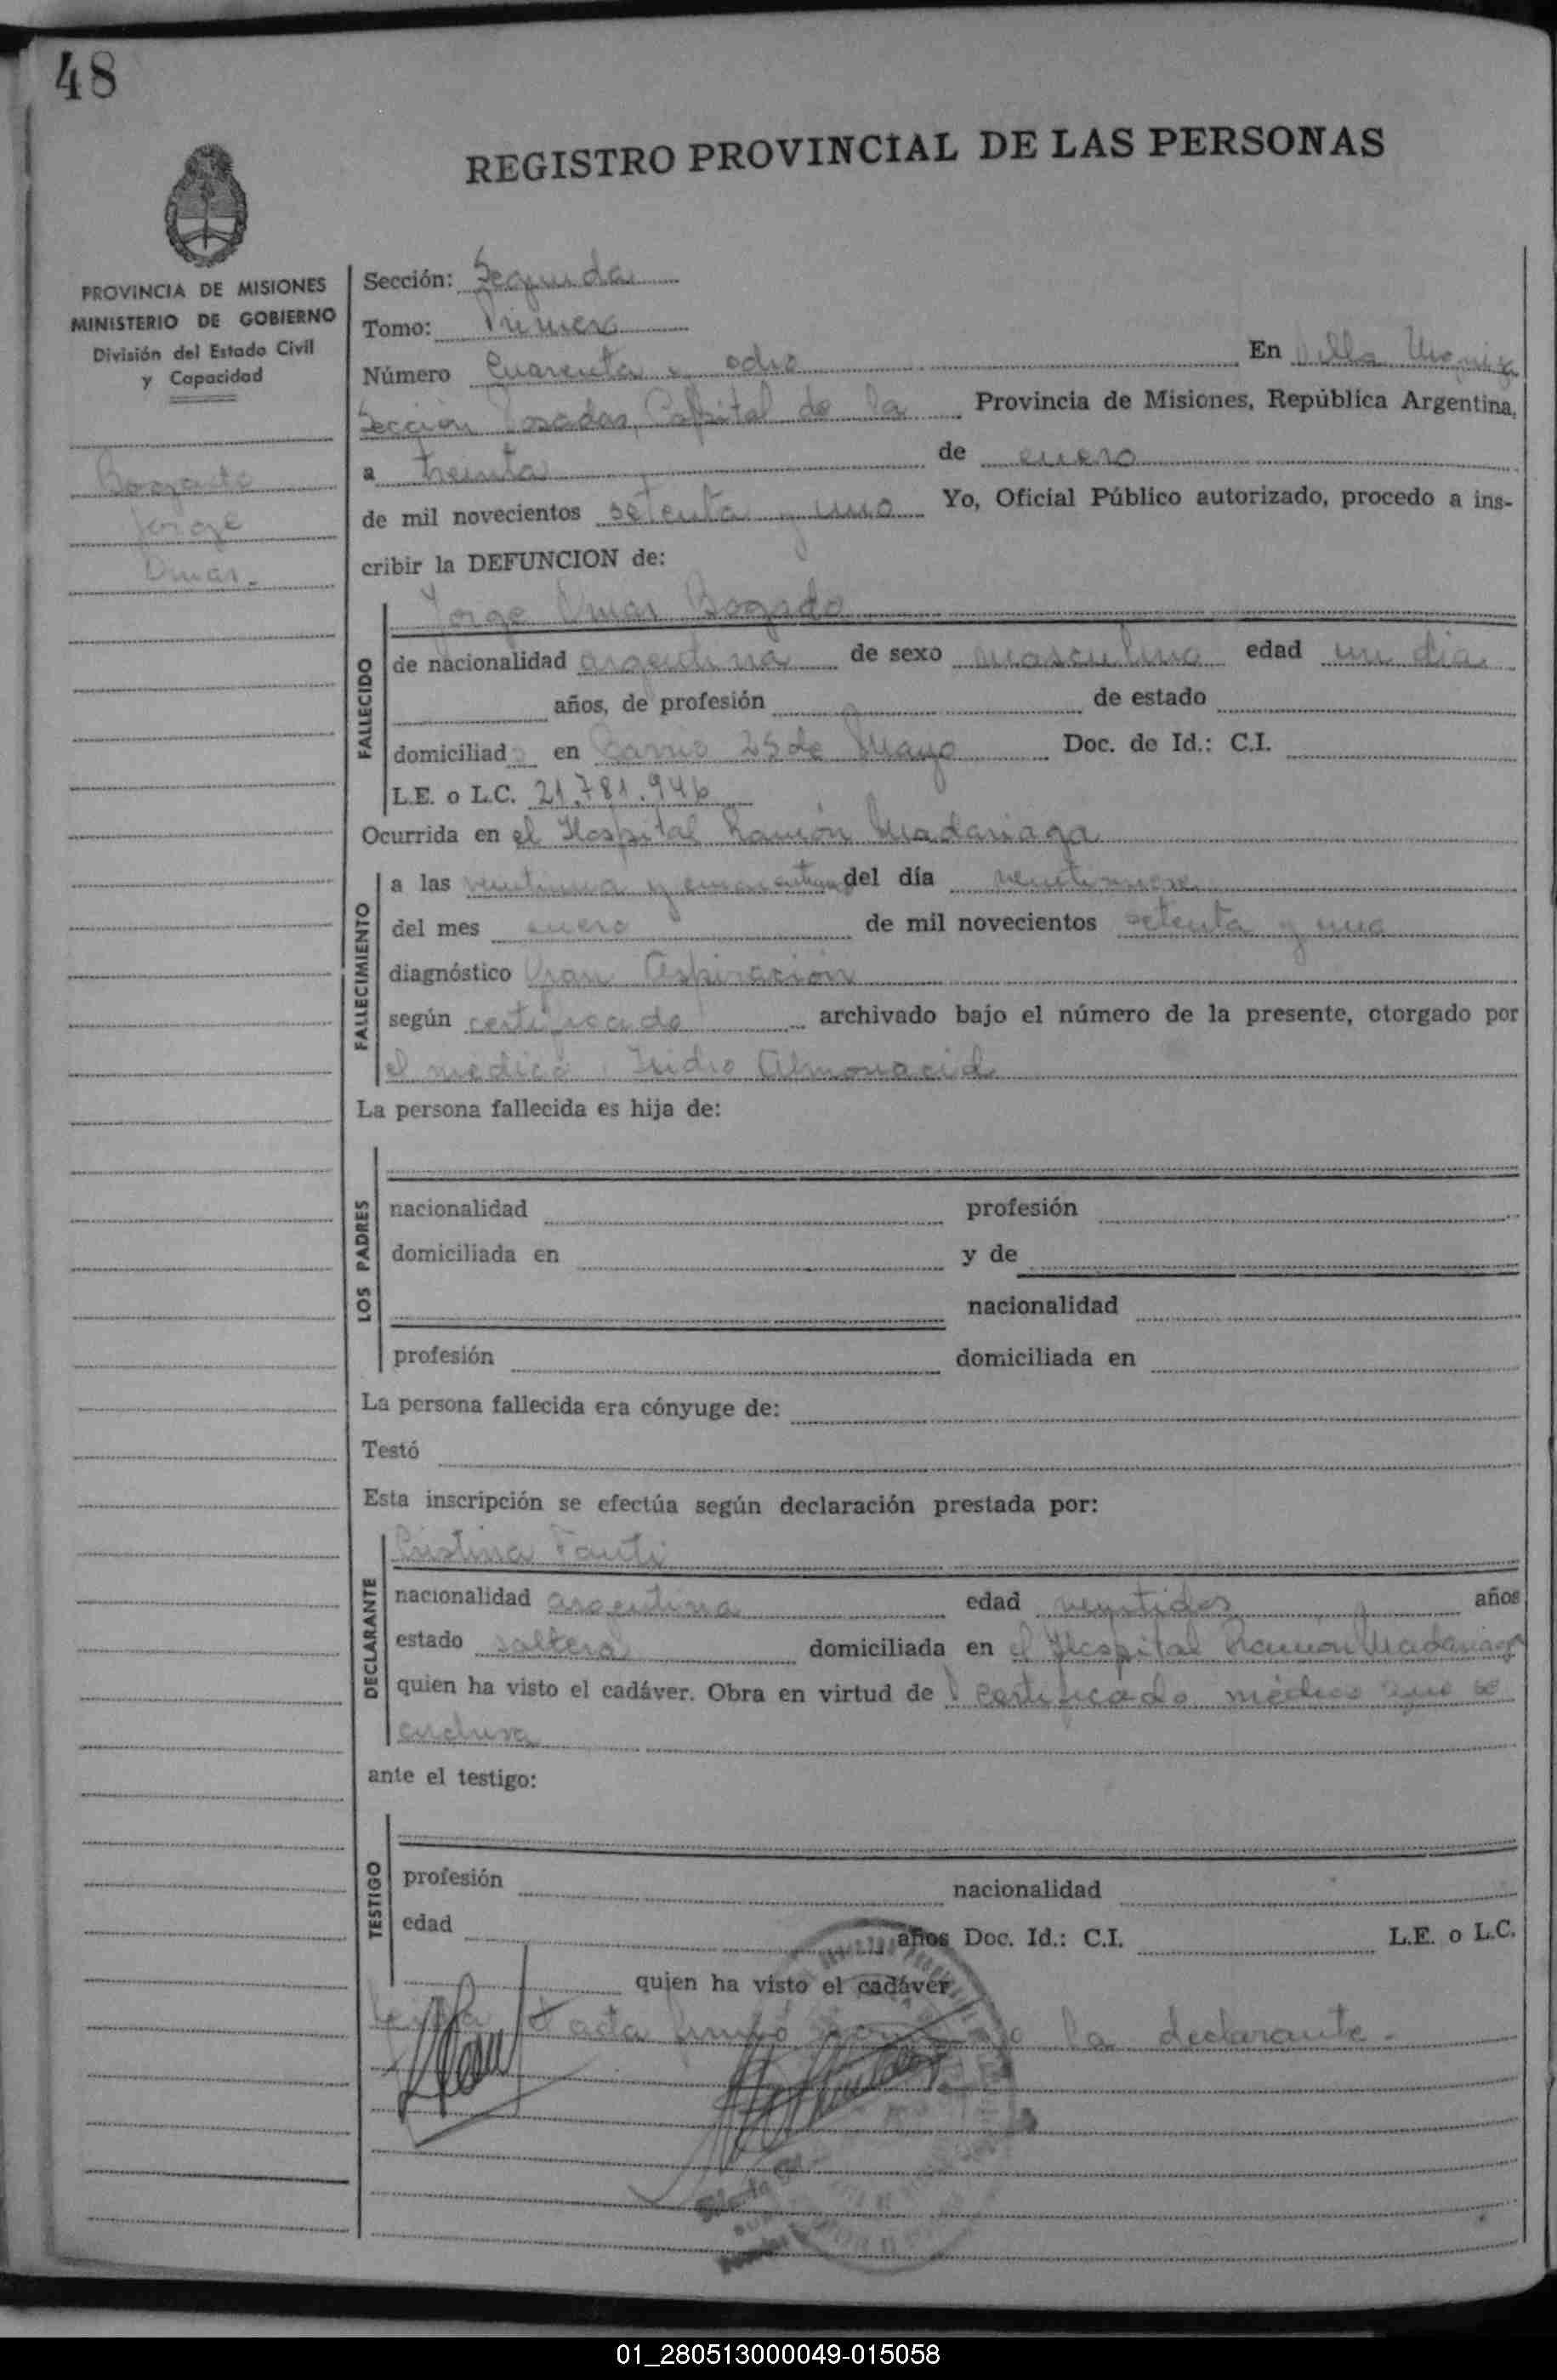 48
REGISTRO PROVINCIAL DE LAS PERSONAS
PROVINCIA DE MISIONES
MINISTERIO DE GOBIERNO
División del Estado Civil
y Capacidad
Bogado
Jorge
Omar.-
Sección: Segunda
Tomo: Primero
Número Cuarenta y ocho En Villa Urquiza
Sección Posadas, Capital de la Provincia de Misiones, República Argentina,
a treinta de enero
de mil novecientos setenta y uno Yo, Oficial Público autorizado, procedo a ins-
cribir la DEFUNCION de:
Jorge Omar Bogado
FALLECIDO
de nacionalidad argentina de sexo masculino edad un dia
años, de profesión de estado
domiciliado en Barrio 25 de Mayo Doc. de Id.: C.I.
L.E. o L.C. 21.781.946
Ocurrida en el Hospital Ramón Madariaga
FALLECIMIENTO
a las y del día veintinueve
del mes enero de mil novecientos setenta y uno
diagnóstico Gran Aspiración
según certificado archivado bajo el número de la presente, otorgado por
el médico, Isidro Almonacid
La persona fallecida es hija de:
LOS PADRES
nacionalidad profesión
domiciliada en y de
nacionalidad
profesión domiciliada en
La persona fallecida era cónyuge de:
Testó
Esta inscripción se efectúa según declaración prestada por:
DECLARANTE
Cristina Fanti
nacionalidad argentina edad veintidos años
estado soltera domiciliada en el Hospital Ramón Madariaga
quien ha visto el cadáver. Obra en virtud de l certificado médico que se
archiva
ante el testigo:
TESTIGO
profesión nacionalidad
edad años Doc. Id.: C.I. L.E. o L.C.
quien ha visto el cadáver
Leida el acta firmó conmigo la declarante.-
01_280513000049-015058